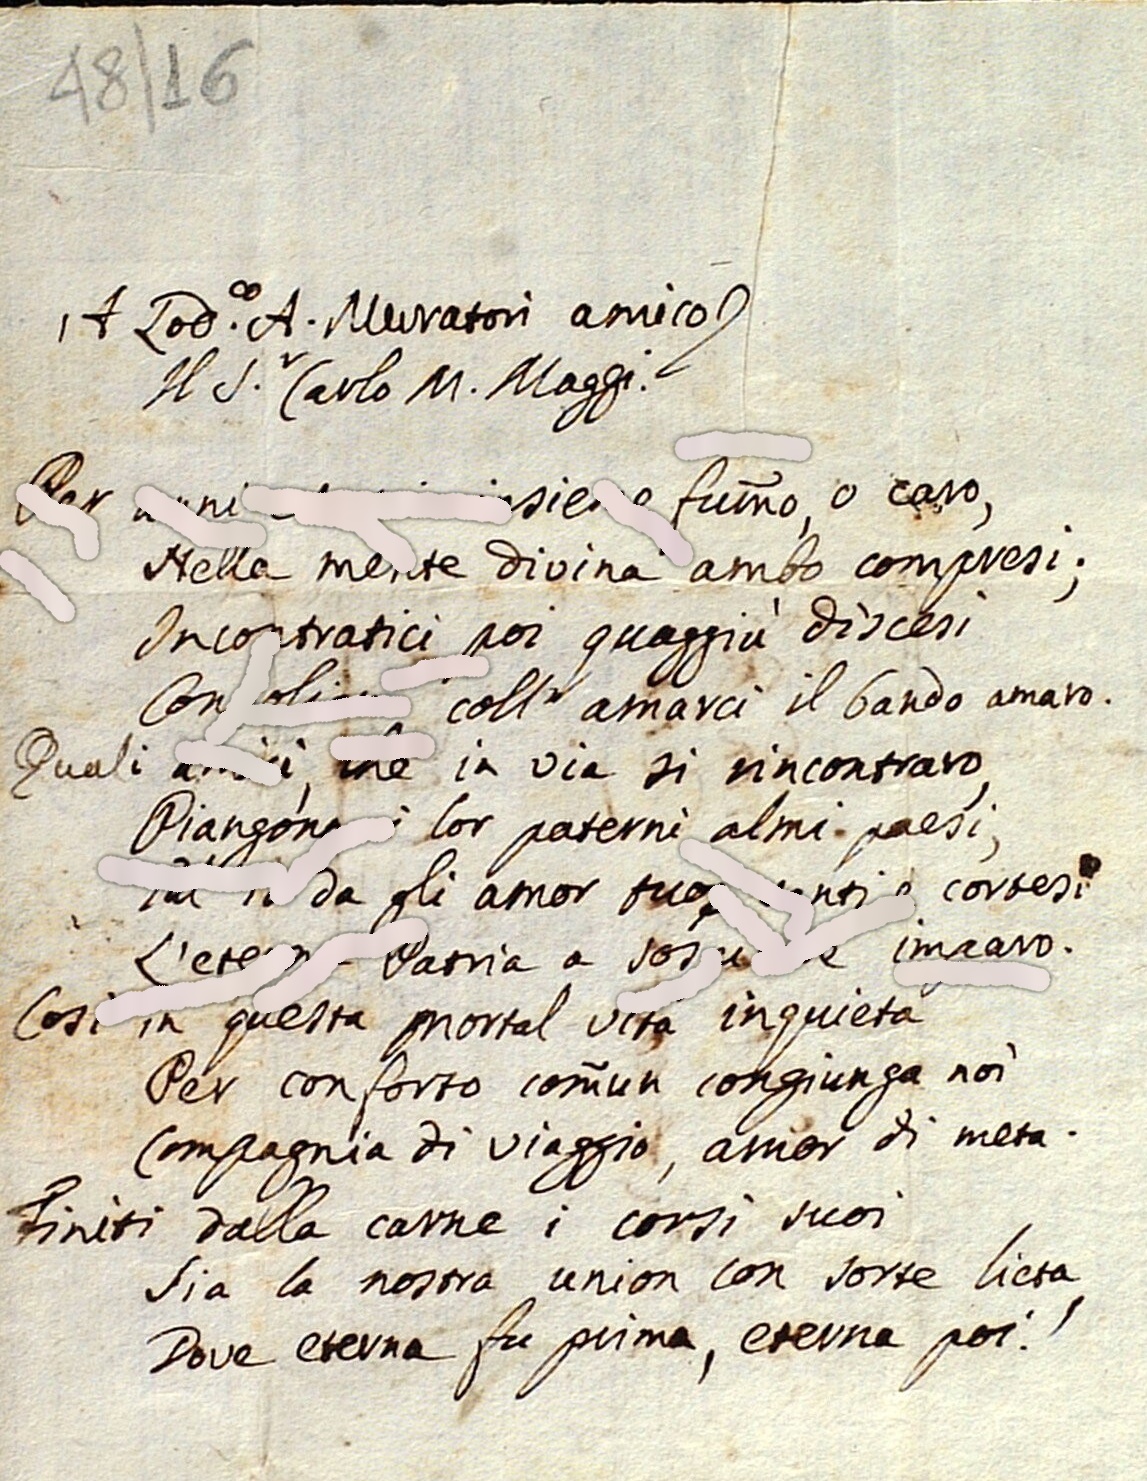 48/16
A Lod.co A. Muratori amico
Il S.r Carlo M. Maggi.
Per anni insieme fum̃o, o caro,
Nella mente divina ambo compresi;
Incontratici poi quaggiù discesi
coll' amarci il bando amaro.
Quali amici, che in via si rincontraro,
Piangono i lor paterni almi paesi,
da gli amor cortesi
L'eterna Patria a imparo.
Così in questa mortal vita inquieta
Per conforto com̃un congiunga noi
Compagnia di viaggio, amor di meta.
Finiti dalla carne i corsi suoi
Sia la nostra union con sorte lieta,
Dove eterna fu prima, eterna poi!